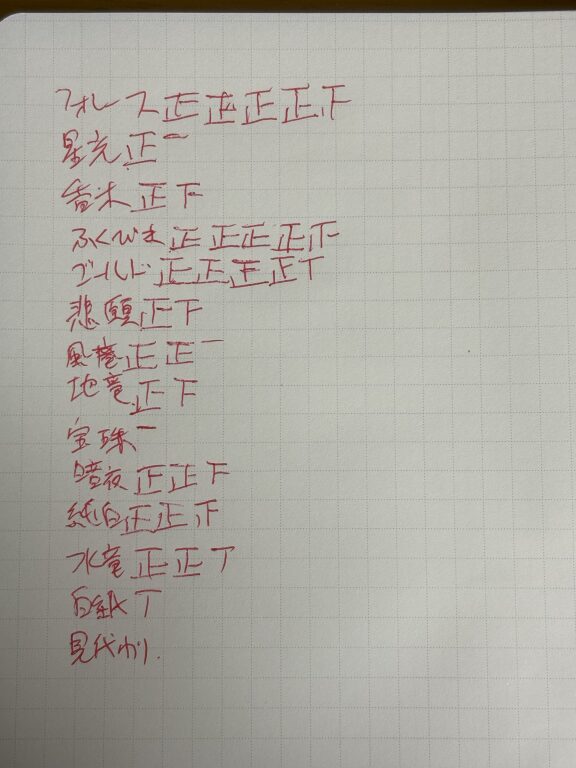 フォレース 正 正 正 正 下
星克 正 一
香木 正 下
ふくびき 正 正 正 正 正
ゴールド 正 正 正 正 丅
悲願 正 下
風竜 正 正 一
地竜 正 下
宝珠 一
暗夜 正 正 下
純白 正 正 下
水竜 正 正 丅
白紙 丅
身代わり